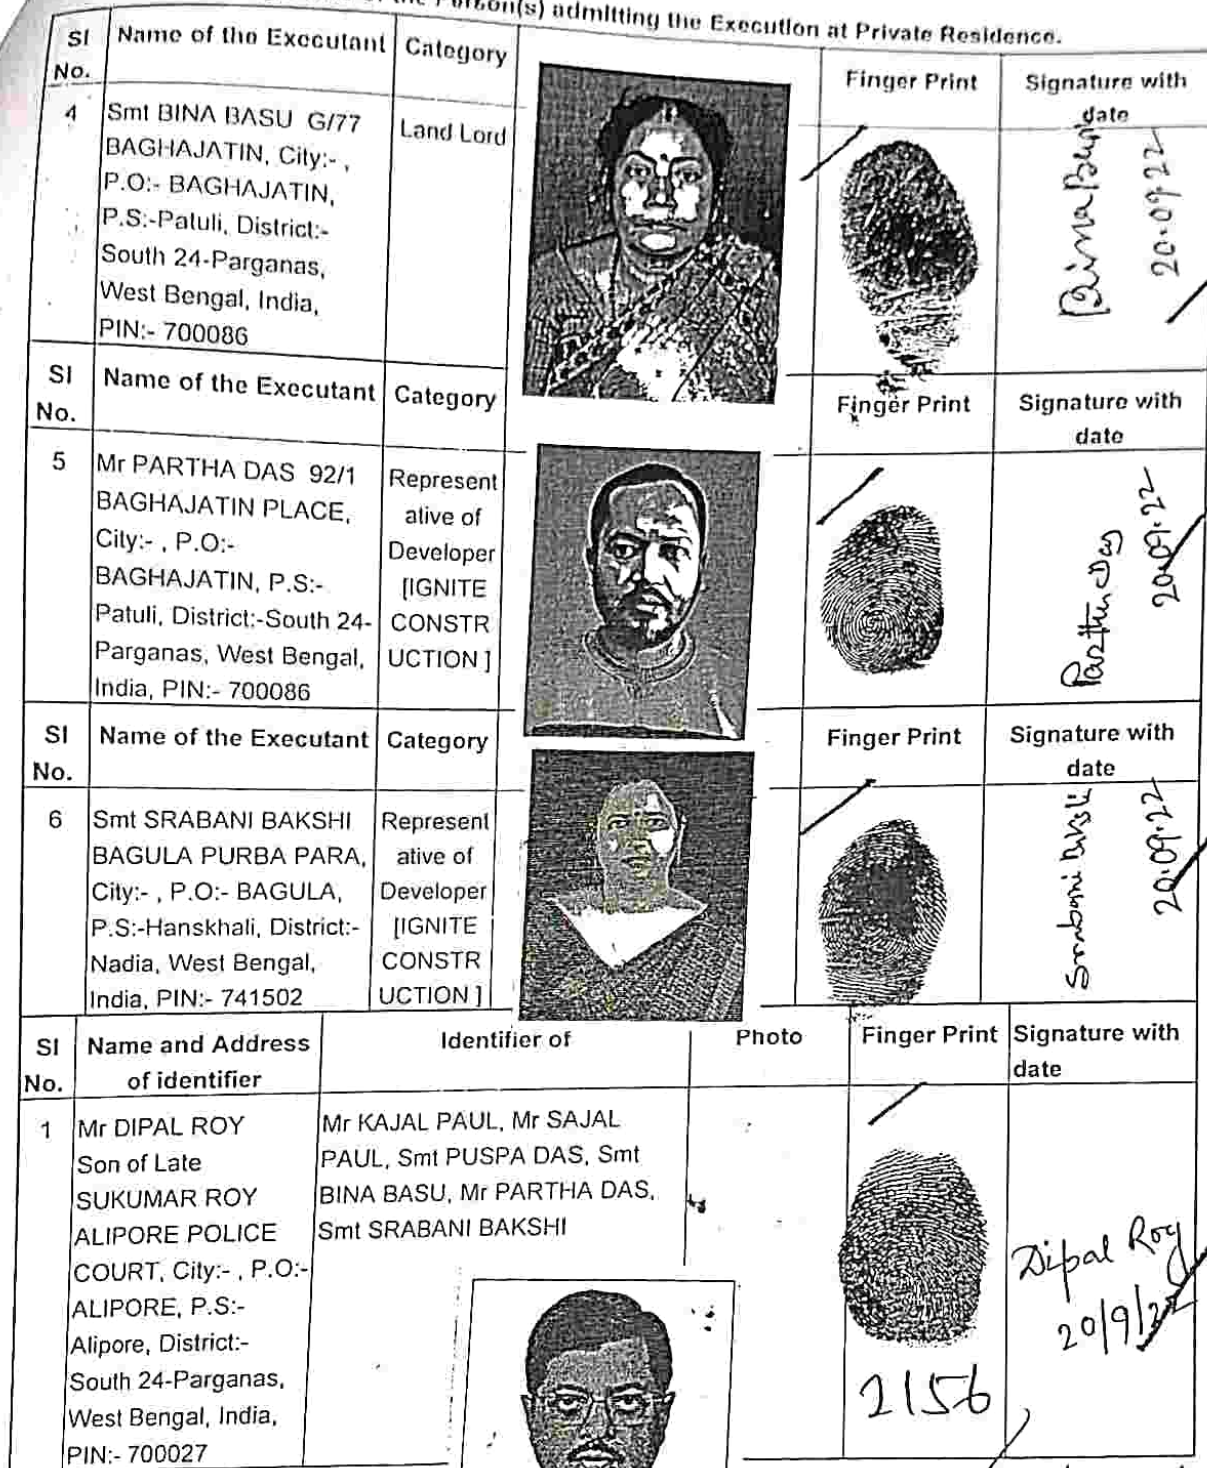 the Person(s) admitting the Execution at Private Residence.
Sl No. Name of the Executant Category Finger Print Signature with date
4 Smt BINA BASU G/77
BAGHAJATIN, City:- ,
P.O:- BAGHAJATIN,
P.S:-Patuli, District:-
South 24-Parganas,
West Bengal, India,
PIN:- 700086
Land Lord
Bina Basu
20.09.22
Sl No. Name of the Executant Category Finger Print Signature with date
5 Mr PARTHA DAS 92/1
BAGHAJATIN PLACE,
City:- , P.O:-
BAGHAJATIN, P.S:-
Patuli, District:-South 24-
Parganas, West Bengal,
India, PIN:- 700086
Represent
ative of
Developer
[IGNITE
CONSTR
UCTION ]
Partha Das
20.09.22
Sl No. Name of the Executant Category Finger Print Signature with date
6 Smt SRABANI BAKSHI
BAGULA PURBA PARA,
City:- , P.O:- BAGULA,
P.S:-Hanskhali, District:-
Nadia, West Bengal,
India, PIN:- 741502
Represent
ative of
Developer
[IGNITE
CONSTR
UCTION ]
Srabani Bakshi
20.09.22
Sl No. Name and Address of identifier Identifier of Photo Finger Print Signature with date
1 Mr DIPAL ROY
Son of Late
SUKUMAR ROY
ALIPORE POLICE
COURT, City:- , P.O:-
ALIPORE, P.S:-
Alipore, District:-
South 24-Parganas,
West Bengal, India,
PIN:- 700027
Mr KAJAL PAUL, Mr SAJAL
PAUL, Smt PUSPA DAS, Smt
BINA BASU, Mr PARTHA DAS,
Smt SRABANI BAKSHI
2156
Dipal Roy
20/9/22